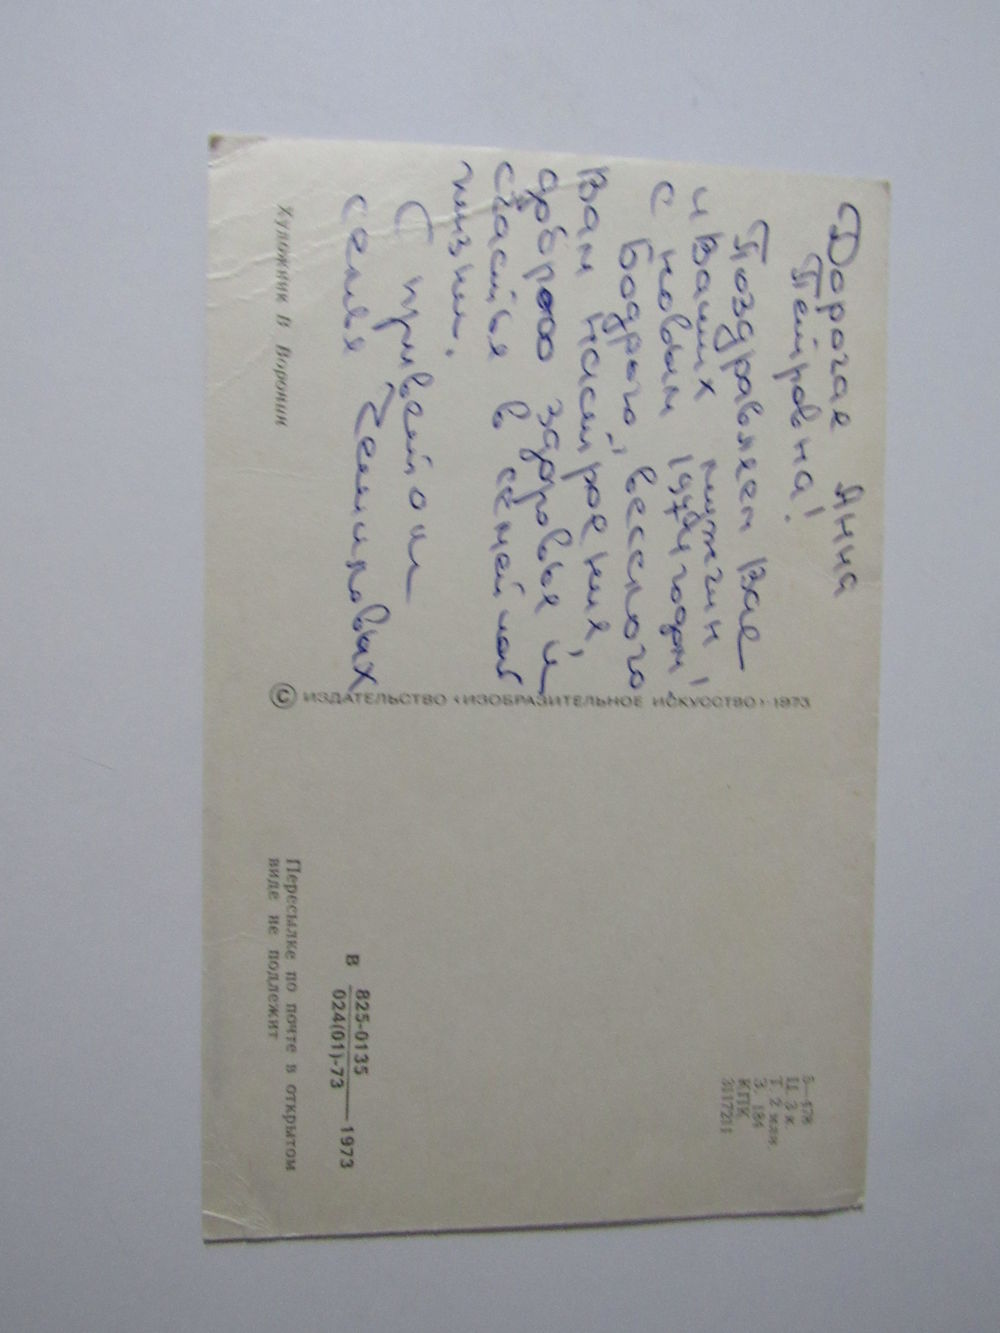 Дорогая Янна
Петровна!
Поздравляем Вас
и Ваших мужчин
с новым 1974 годом!
Бодрого, веселого
Вам настроения,
доброго здоровья и
счастья в семейной
жизни.
С приветом
семья
Художник В Воронин
© ИЗДАТЕЛЬСТВО «ИЗОБРАЗИТЕЛЬНОЕ ИСКУССТВО» 1973
5—478
Ц. 3 к.
Т. 2 млн.
З. 184
КПК
3117211
В 825-0135
024(01)-73 — 1973
Пересылке по почте в открытом
виде не подлежит